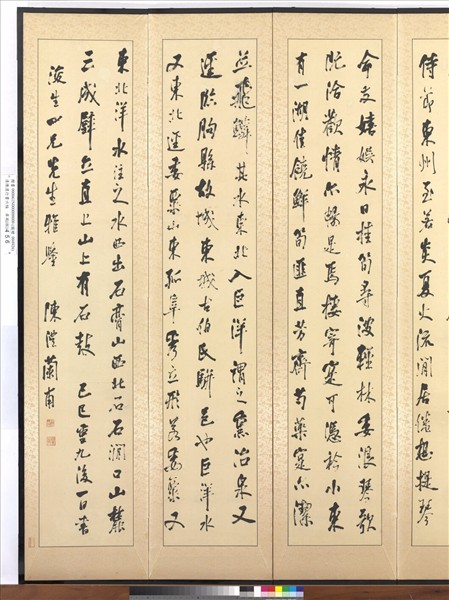 侍節東州至若炎夏火流閒居倦想提琴
命友嬉娛永日桂筍尋波輕林委浪琴歌
既洽歡情亦暢是焉棲寄寔可憑衿小東
有一湖佳饒鮮筍匪直芳齊芍藥寔亦潔
並飛鱗其水東北入巨洋謂之熏冶泉又
逕臨朐縣故城東城古伯氏駢邑也巨洋水
又東北逕委粟山東孤阜秀立形若委粟又
東北洋水注之水西出石膏山西北石石澗口山麓
三成壁立直上山上有石鼓 己巳重九後一日書
浚生四兄先生雅鑒 陳澧蘭甫